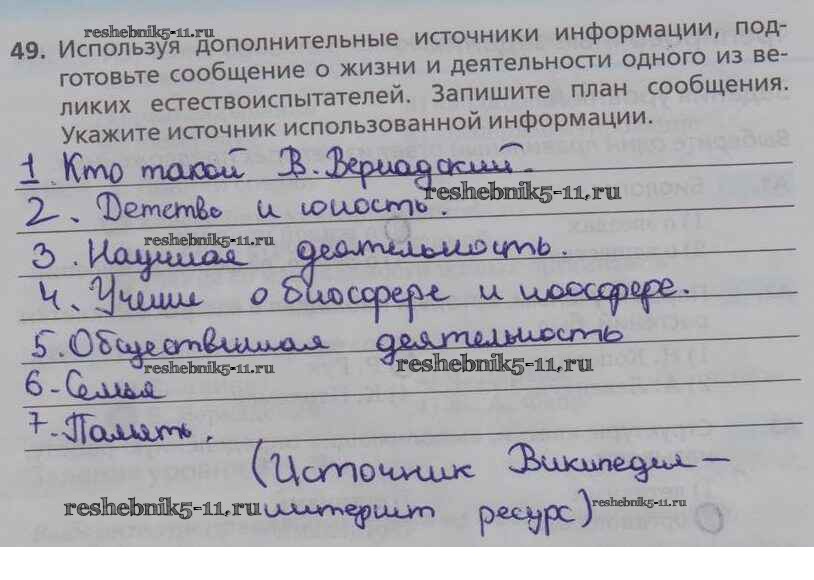 reshebnik5-11.ru
49. Используя дополнительные источники информации, под-
готовьте сообщение о жизни и деятельности одного из ве-
ликих естествоиспытателей. Запишите план сообщения.
Укажите источник использованной информации.
1. Кто такой В. Вернадский.
reshebnik5-11.ru
2. Детство и юность.
reshebnik5-11.ru
3. Научная деятельность.
4. Учение о биосфере и ноосфере.
5. Общественная деятельность
reshebnik5-11.ru reshebnik5-11.ru
6. Семья
7. Память.
(Источник Википедия –
reshebnik5-11.ru интернет ресурс) reshebnik5-11.ru